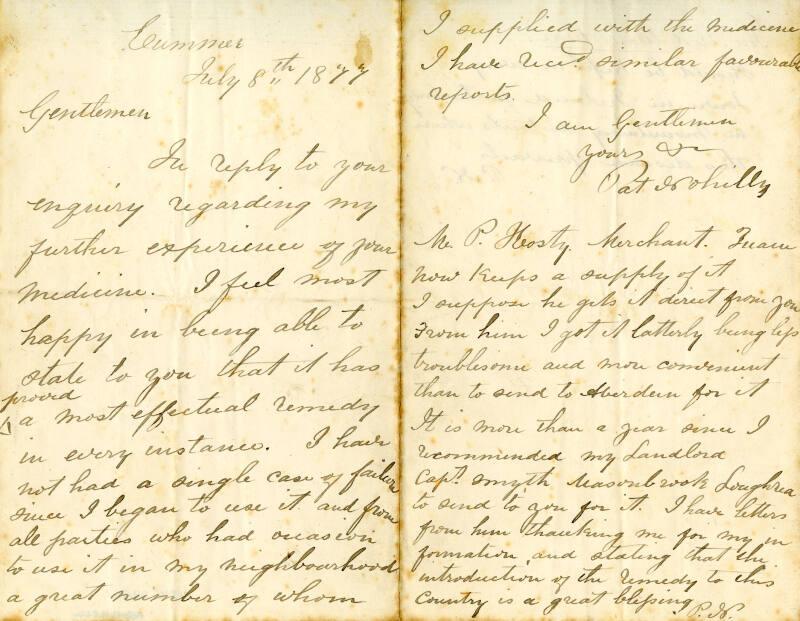 Cummer
July 8th 1877
Gentlemen
In reply to your
enquiry regarding my
further experience of your
medicine. I feel most
happy in being able to
state to you that it has
proved
a most effectual remedy
in every instance. I have
not had a single case of failure
since I began to use it and from
all parties who had occasion
to use it in my neighbourhood
a great number of whom
I supplied with the medicine
I have recd similar favourable
reports.
I am Gentlemen
yours &c
Pat
Mr. P. Hosty. Merchant. Tuam
now keeps a supply of it
I suppose he gets it direct from you
From him I got it latterly being less
troublesome and more convenient
than to send to Aberdeen for it
It is more than a year since I
recommended my Landlord
Capt. Smyth Masonbrook Loughrea
to send to you for it. I have letters
from him thanking me for my in
formation, and stating that the
introduction of the remedy to this
Country is a great blessing
P. N.